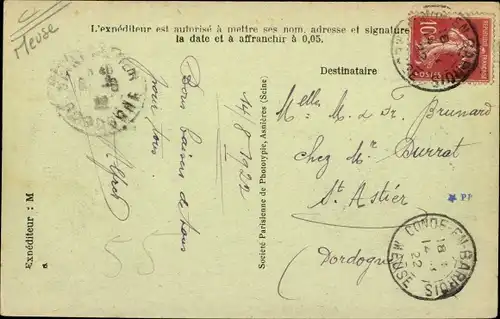 Meuse
L'expéditeur est autorisé à mettre ses nom, adresse et signature
la date et à affranchir à 0,05.
10
POSTES
Destinataire
Melles M. & Fr. Brunard
chez Mr Durrat
St Astier
Dordogne
CONDE-EN-BARROIS
18
14
22
MEUSE
14/8/1922
Bons baisers de tous
pour tous.
Société Parisienne de Phototypie, Asnières (Seine)
Expéditeur : M
55